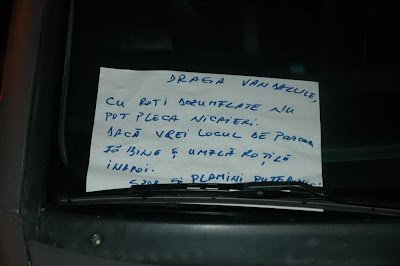 DRAGA VANDALULE,
CU ROȚI DEZUMFLATE NU
POT PLECA NICAIERI.
DACĂ VREI LOCUL DE PARCARE
FĂ BINE ȘI UMFLĂ ROȚILE
INAPOI.
SPOR ȘI PLAMINI PUTERNICI!